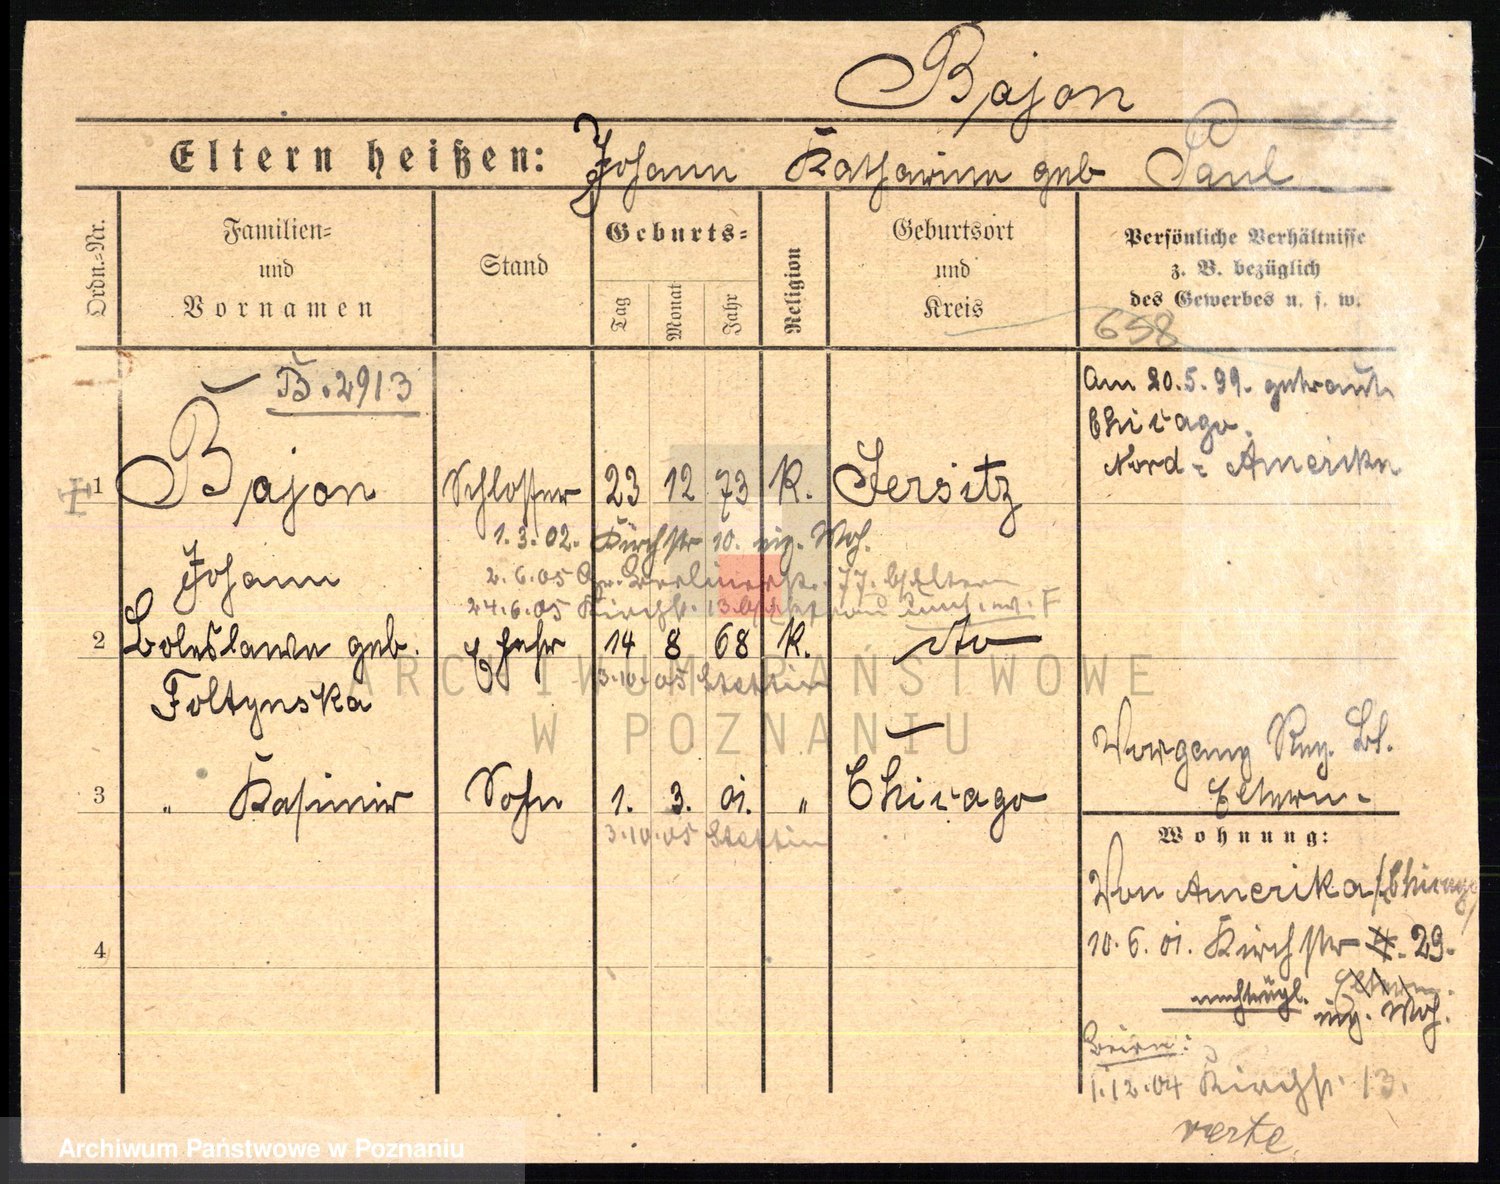 Bajon
Eltern heißen: Johann Katharina geb Paul
Ordn.-Nr.
Familien-
und
Vornamen
Stand
Geburts-
Tag
Monat
Jahr
Religion
Geburtsort
und
Kreis
Persönliche Verhältnisse
z. B. bezüglich
des Gewerbes u. s. w.
658
B. 2913
Am 20.5.99. getraut
Chicago.
Nord-Amerika
1 Bajon Schlosser 23 12 73 K. Jersitz
1.3.02. Kirchstr 10. eig. Woh.
Johann
2.6.05 Berlinerstr. 77. b/Eltern
24.6.05 Kirchstr. 13
2 Boleslawa geb. Ehefr 14 8 68 K. dto
3.10.05 Stettin
Foltynska
Vorgang Reg. Bl.
Eltern.
3 " Kasimir Sohn 1. 3. 01. " Chicago
3.10.05 Stettin
Wohnung:
Von Amerika/Chicago/
10.6.01. Kirchstr 29.
nachträgl. Eltern.
eig. Woh.
4
1.12.04 Kirchstr. 13.
verte
ARCHIWUM PAŃSTWOWE
W POZNANIU
Archiwum Państwowe w Poznaniu